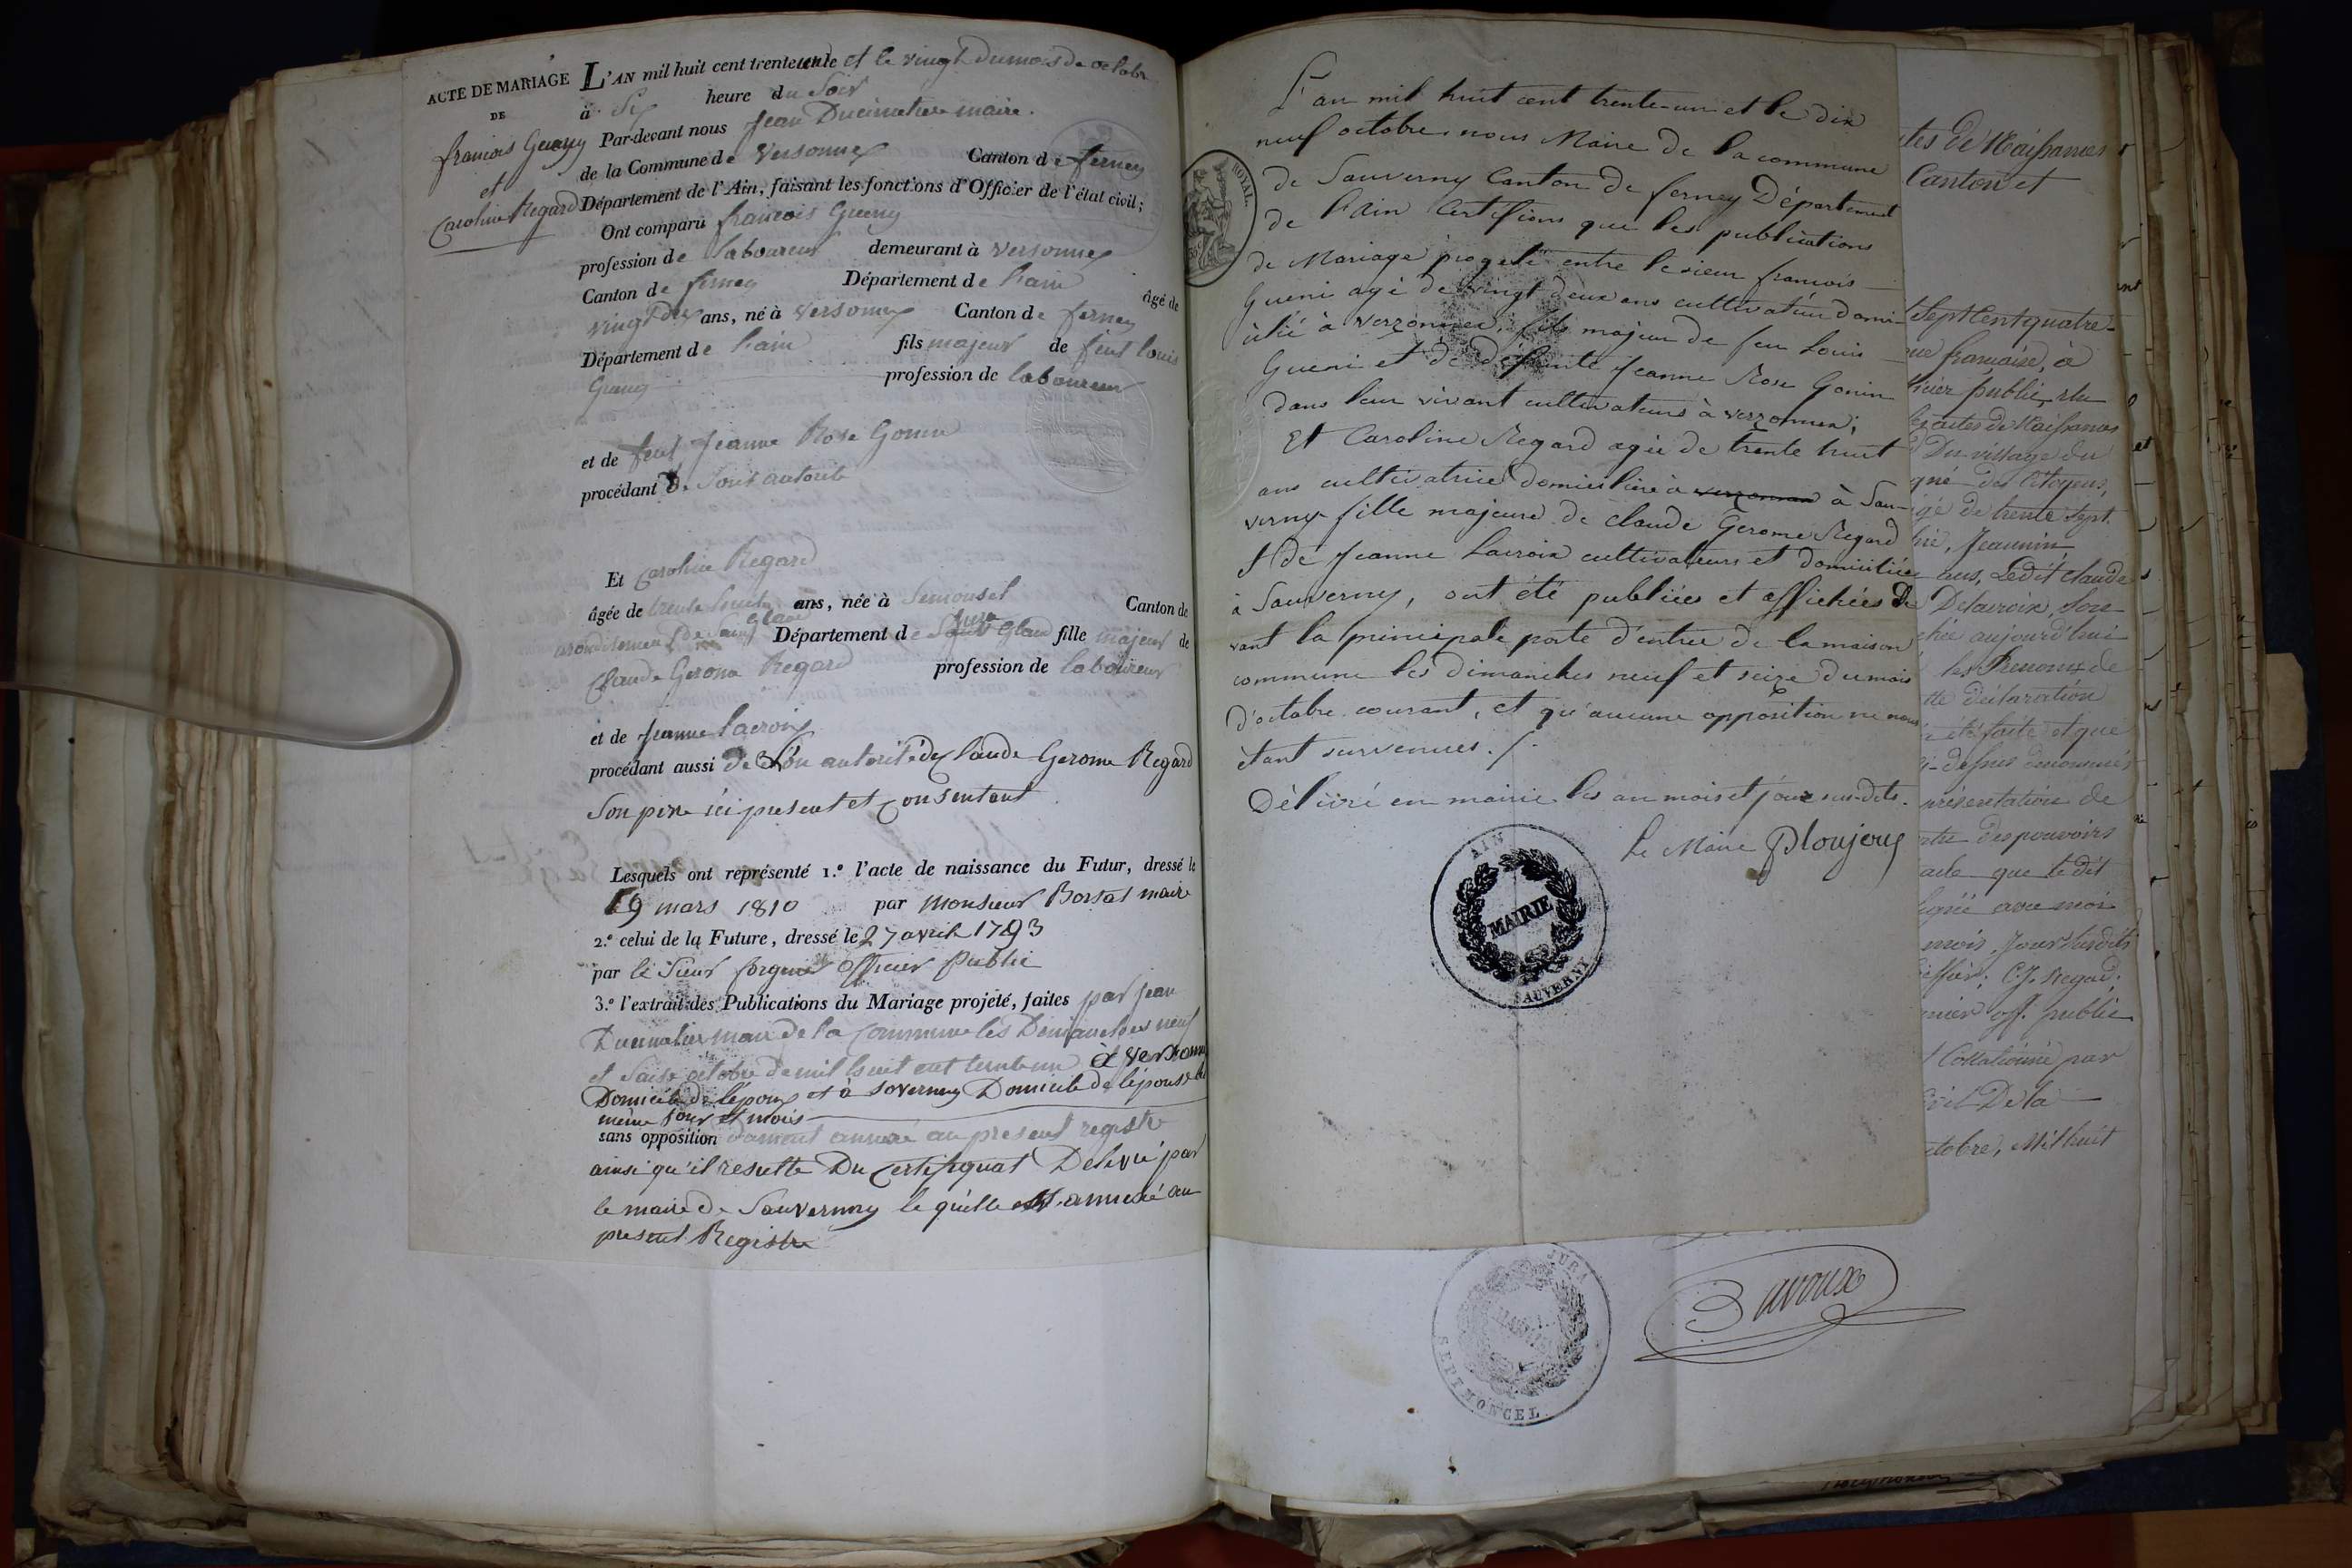 ACTE DE MARIAGE
DE
francois Gueny
et
Caroline Regard
L'AN mil huit cent trente et le vingt du mois de octobre
à Six heure du Soir
Par-devant nous Jean Ducimetiere maire.
de la Commune de Versonnex Canton de ferney
Département de l'Ain, faisant les fonctions d'Officier de l'état civil;
Ont comparu francois Gueny
profession de laboureur demeurant à Versonnex
Canton de ferney Département de l'ain âgé de
vingt deux ans, né à Versonnex Canton de ferney
Département de l'ain fils majeur de feut louis
Gueny profession de laboureur
et de feut Jeanne Rose Gonin
procédant de Sont autorité
Et Caroline Regard
âgée de trente huit ans, née à Semonsel Canton de
arondisement de Saint Glaude Département de jura fille majeur de
Claude Gerome Regard profession de laboureur
et de jeanne lacroix
procédant aussi de Son autorité de Claude Gerome Regard
Son pere ici present et Consentant
Lesquels ont représenté 1.° l'acte de naissance du Futur, dressé le
19 mars 1810 par Monsieur maire
2.° celui de la Future, dressé le 27 avril 1793
par le Sieur Officier Public
3.° l'extrait des Publications du Mariage projeté, faites par jean
Ducimetier maire de la Commune les Dimanches neuf
et Saise octobre de mil huit cent trente un à Versonnex
Domicile de l'époux et à Soverney Domicile de l'épouse les
même jour et mois
sans opposition annexé au present registre
ainsi qu'il resulte Du Certifiquat Delivré par
le maire de Sauvernny le quelle est annexé au
present Registre
L'an mil huit cent trente-un et le dix
neuf octobre, nous Maire de la commune
de Sauverny Canton de ferney Département
de l'Ain Certifions que les publications
de Mariage progeté entre le sieur francois
Gueni agé de vingt deux ans cultivateur domi-
cilié à Verzonnex, fils majeur de feu Louis
Gueni et de défunte Jeanne Rose Gonin
dans leur vivant cultivateurs à Verzonnex;
Et Caroline Regard agée de trente huit
ans cultivatrice domiciliée à verzonnex à Sau-
verny fille majeure de Claude Gerome Regard
et de Jeanne Lacroix cultivateurs et domiciliés
à Sauverny, ont été publiées et affichées de
vant la principale porte d'entrée de la maison
commune les dimanches neuf et seize du mois
d'octobre courant, et qu'aucune opposition ne nous
étant survenues./.
Délivré en mairie les an mois et jour sus-dits.
Le Maire Ploujoux
ROYAL.
AIN
MAIRIE
SAUVERNY
JURA
SEPTMONCEL
Davoux
tes de Naissances
Canton et
Sept Cent quatre-
ue française, à
ficier public, élu
les actes de Naissances
Du village du
gné des Citoyens,
gé de trente Sept
Jeannin
ans, Ledit Claude
Delacroix, Son
aujourd'hui
les Prenoms de
tte déclaration
été faite et que
denommés
présentation de
des pouvoirs
acte que le dit
signée avec moi
mois, Jour Susdits
C.J. Regad;
off. public
Collationné par
civil De la
octobre, Mil huit